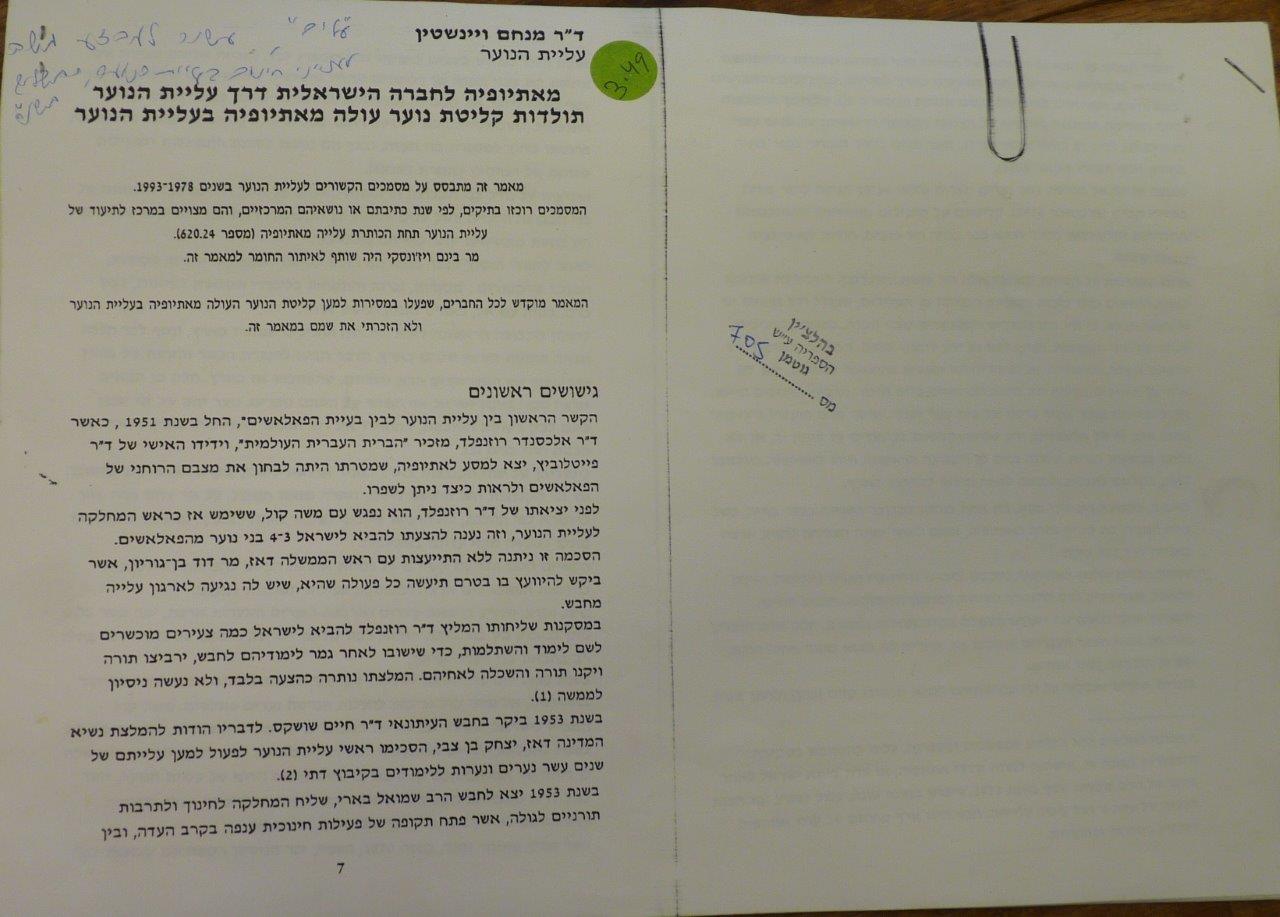 ד"ר מנחם ויינשטין
עליית הנוער
3.49
מאתיופיה לחברה הישראלית דרך עליית הנוער
תולדות קליטת נוער עולה מאתיופיה בעליית הנוער
מאמר זה מתבסס על מסמכים הקשורים לעליית הנוער בשנים 1993-1978.
המסמכים רוכזו בתיקים, לפי שנת כתיבתם או נושאיהם המרכזיים, והם מצויים במרכז לתיעוד של
עליית הנוער תחת הכותרת עלייה מאתיופיה (מספר 620.24).
מר בינם ויז'ונסקי היה שותף לאיתור החומר למאמר זה.
המאמר מוקדש לכל החברים, שפעלו במסירות למען קליטת הנוער העולה מאתיופיה בעליית הנוער
ולא הזכרתי את שמם במאמר זה.
גישושים ראשונים
הקשר הראשון בין עליית הנוער לבין בעיית הפאלאשים", החל בשנת 1951 , כאשר
ד"ר אלכסנדר רוזנפלד, מזכיר "הברית העברית העולמית", וידידו האישי של ד"ר
פייטלוביץ, יצא למסע לאתיופיה, שמטרתו היתה לבחון את מצבם הרוחני של
הפאלאשים ולראות כיצד ניתן לשפרו.
לפני יציאתו של ד"ר רוזנפלד, הוא נפגש עם משה קול, ששימש אז כראש המחלקה
לעליית הנוער, וזה נענה להצעתו להביא לישראל 4-3 בני נוער מהפאלאשים.
הסכמה זו ניתנה ללא התייעצות עם ראש הממשלה דאז, מר דוד בן-גוריון, אשר
ביקש להיוועץ בו בטרם תיעשה כל פעולה שהיא, שיש לה נגיעה לארגון עלייה
מחבש.
במסקנות שליחותו המליץ ד"ר רוזנפלד להביא לישראל כמה צעירים מוכשרים
לשם לימוד והשתלמות, כדי שישובו לאחר גמר לימודיהם לחבש, ירביצו תורה
ויקנו תורה והשכלה לאחיהם. המלצתו נותרה כהצעה בלבד, ולא נעשה ניסיון
לממשה (1).
בשנת 1953 ביקר בחבש העיתונאי ד"ר חיים שושקס. לדבריו הודות להמלצת נשיא
המדינה דאז, יצחק בן צבי, הסכימו ראשי עליית הנוער לפעול למען עלייתם של
שנים עשר נערים ונערות ללימודים בקיבוץ דתי (2).
בשנת 1953 יצא לחבש הרב שמואל בארי, שליח המחלקה לחינוך ולתרבות
תורניים לגולה, אשר פתח תקופה של פעילות חינוכית ענפה בקרב העדה, ובין
7
בהלצ'ין
הספריה ע"ש
גוטמן
מס 705